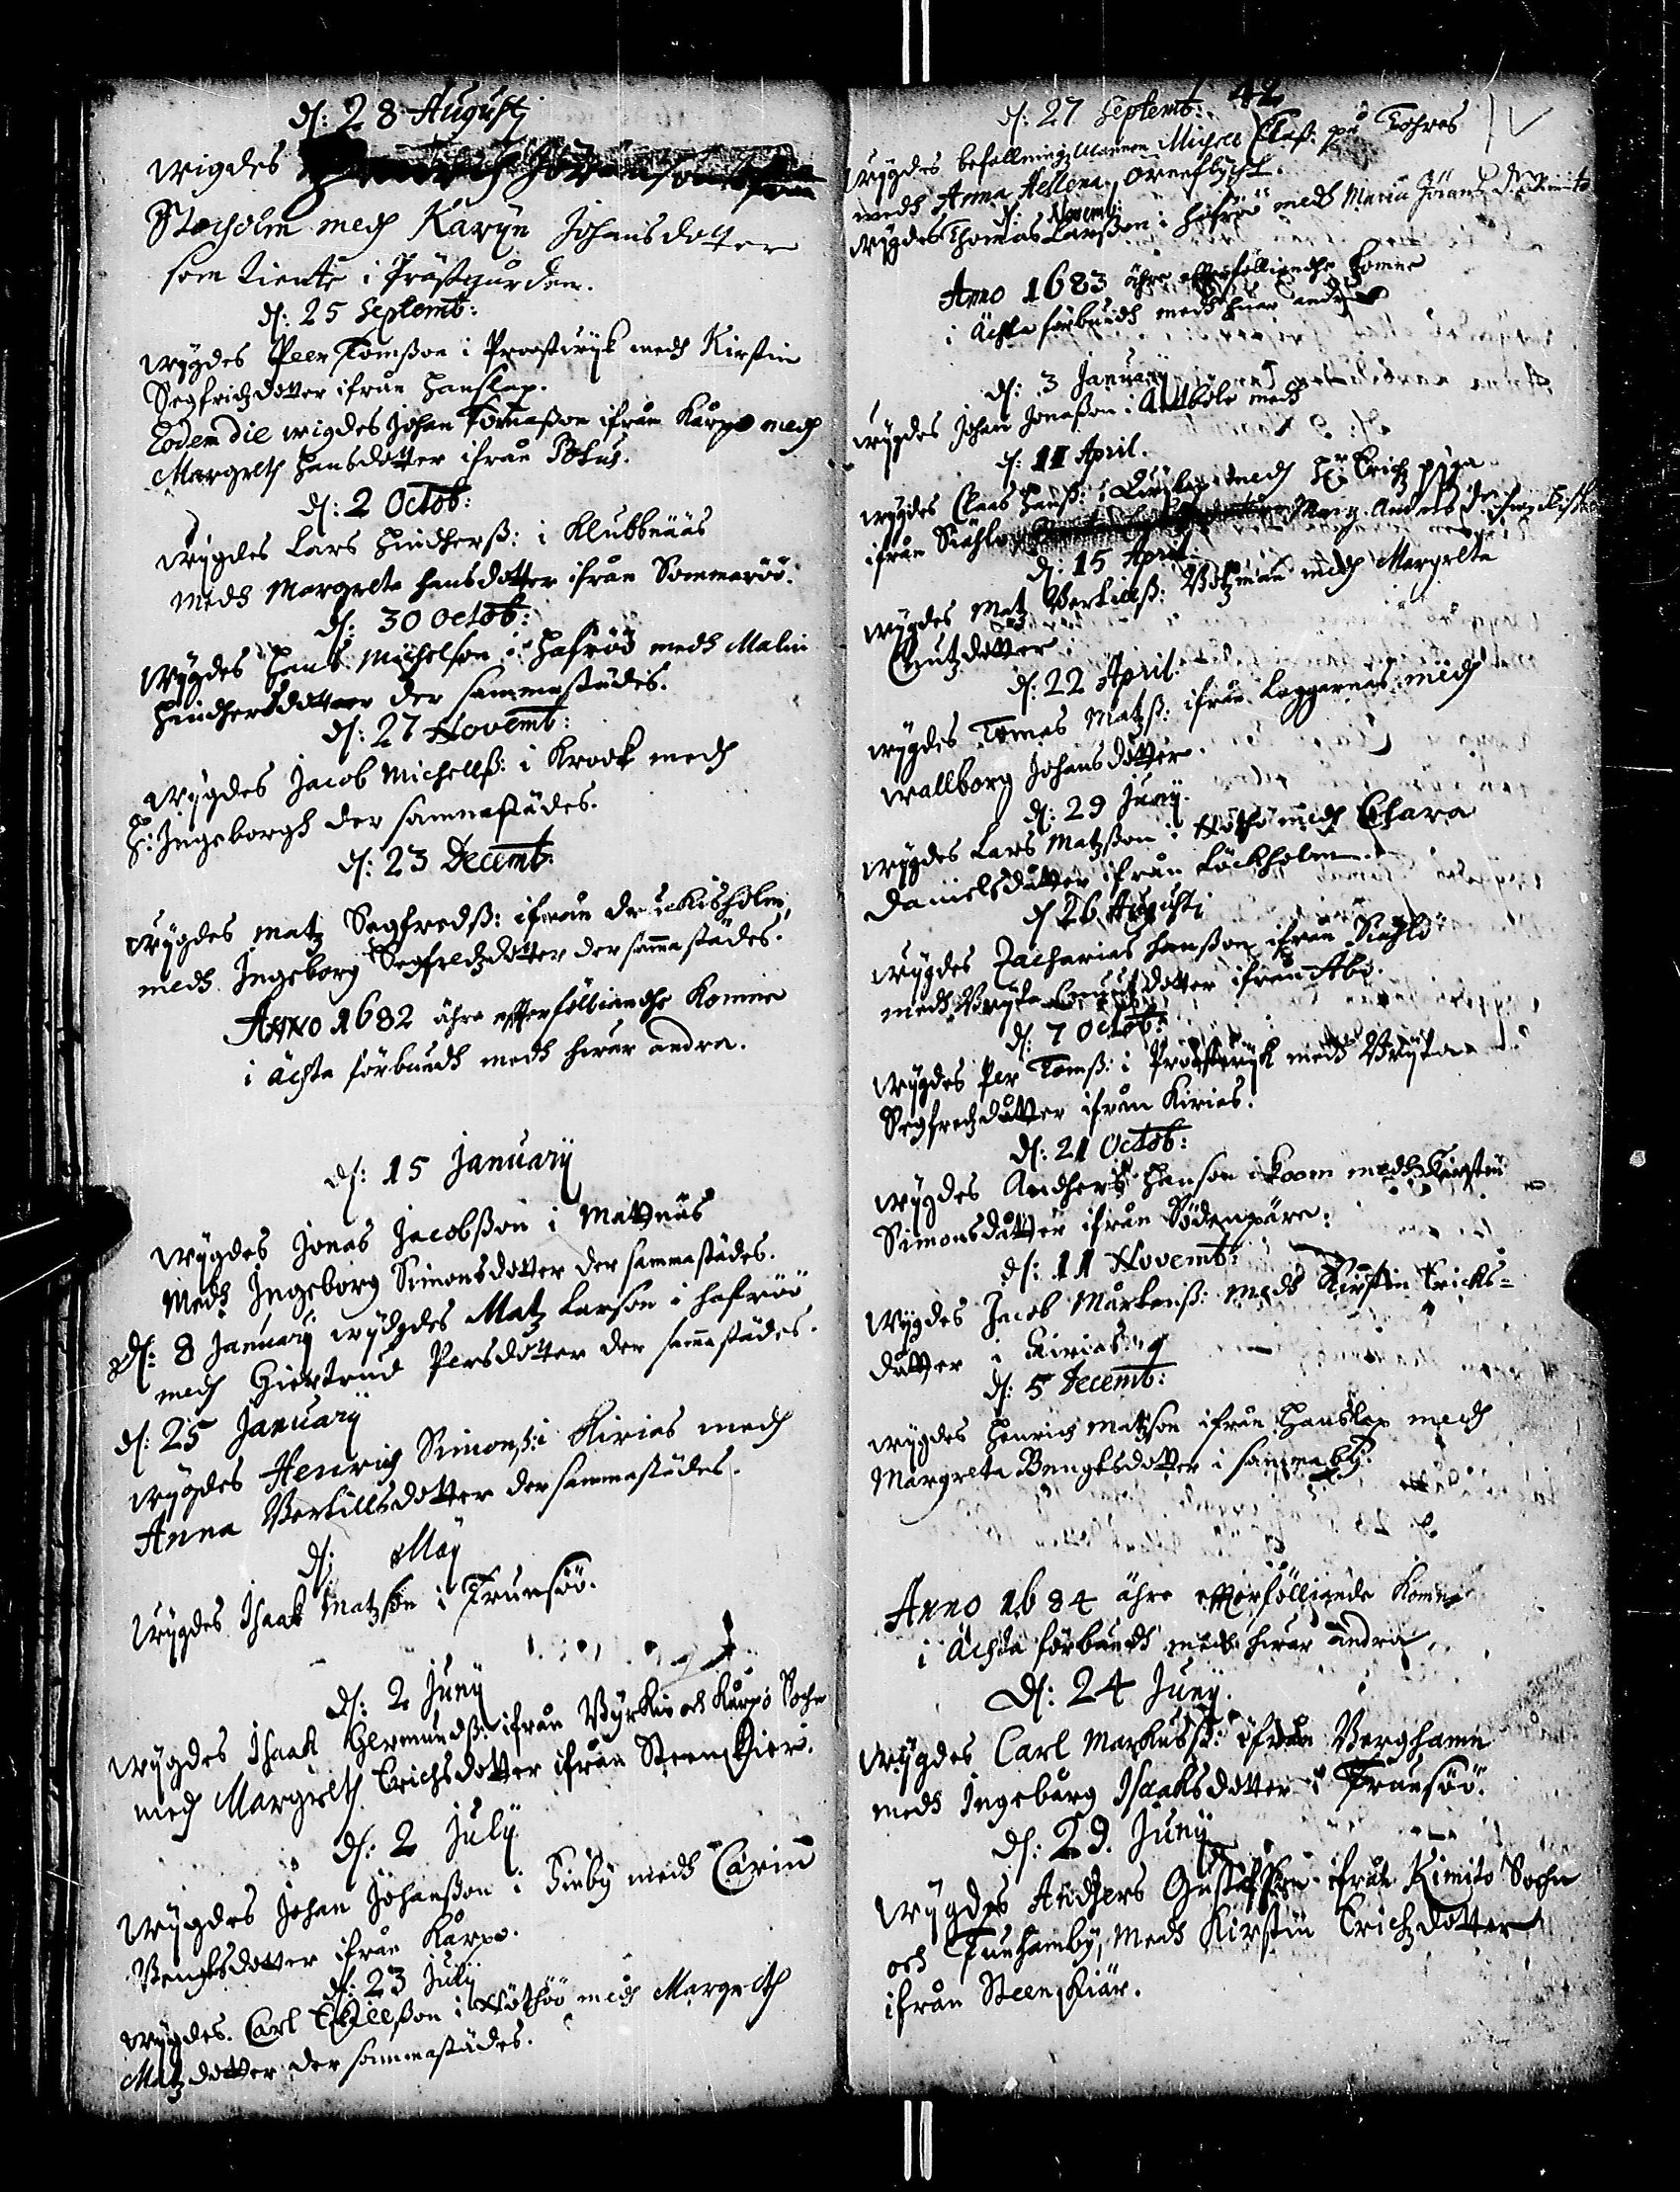 d: 28 Augusti
wigdes
Stocholm medh Karyn Johansdotter
som tiente i Prästgården.
d: 25 Septemb:
wygdes Peer Tomßon i Proostwyk medh Kirstin
Segfridzdotter ifrån
Eodem die wigdes Johan Tomaßon ifrån Kårpo medh
Margreth Hansdotter ifrån
d: 2 Octob:
wygdes Lars Hindherß: i Klubbnääs
medh Margreta Hansdotter ifrån Sommaröö.
d: 30 Octob:
wygdes Hans Michelson i Hafröö medh Malin
Hindhersdotter der sammastädes.
d: 27 Novemb:
wygdes Jacob Michellß: i Krook medh
H: Ingeborgh der sammastädes.
d: 23 Decemb:
wygdes Matz Segfredß: ifrån
medh Ingeborg Segfredzdotter der sammastädes.
Anno 1682 åhre efterfölliandhe komne
i ächta förbundh medh hwar andra.
d: 15 January
wygdes Jonas Jacobßon i Mattnäs
Medh Ingeborg Simonsdotter der sammastädes.
d: 8 January wydgdes Matz Larson i Hafröö
medh Giertrud Persdotter der sammastädes.
d: 25 January
wygdes Henrich Simonß: i Kirias medh
Anna Bertillsdotter der sammastädes.
d: May
wygdes Isaak Matzson i Trunsöö.
d: 2 Juny
wygdes Isaak Hermundß: ifrån Byrkis och Kårpo Sochn
medh Margreth Erichsdotter ifrån Steenskier.
d: 2 July
wygdes Johan Johanßon i Finby medh Carin
Bengtsdotter ifrån Karpo.
d: 23 July
wygdes Carl Eskilßon i Nöthöö medh Margreth
Matzdotter der sammastädes.
42
d: 27 Septemb:
wygdes befallningzmannen Michel Claß: på Tohres
medh Anna Hellena Orneflycht.
d: Novemb:
wygdes Thomas Larßon i Hafröö medh Maria Jöransd: Kimito
Anno 1683 åhre efterfölliandhe komne
i ächta förbundh medh hwar andra
d: 3 January
wygdes Johan Jonaßon i Attbole medh
d: 11 April.
wygdes Claas Hanß: i medh H:r Erichz piga
ifrån Siählo Marg. Anders d:
d: 15 April
wygdes Matz Bertillß: Botzman medh Margreta
Knutzdotter
d: 22 April
wygdes Tomas Matzß: ifrån Laggarnäs medh
Wallborg Johansdotter.
d: 29 Juny.
wygdes Lars Matzßon i Nöthö medh Chara
Danielsdotter ifrån Löckholm.
d 26 Augusti
wygdes Zacharias Hanßon ifrån Siählö
medh Bryta Knutzdotter ifrån Åbo.
d: 7 Octob:
wygdes Per Tomß: i Proostwyk medh Bryta
Segfredzdotter ifrån Kirias.
d: 21 Octob:
wygdes Andhers Hanson i Koom medh Kirstin
Simonsdotter ifrån
d: 11 Novemb:
wygdes Jacob Markusß: medh Kirstin Ericks=
dotter i Kirias
d: 5 Decemb:
wygdes Henrich Matzson ifrån medh
Margreta Bengtsdotter i samma by.
Anno 1684 åhre efterfölliande komne
i ächta förbundh medh hwar andra
d: 24 Juny.
wygdes Carl Markusß: ifrån Berghamn
medh Ingeburg Isaaksdotter i Trunsöö.
d: 29. Juny
wygdes Andhers Gustafßon ifrån Kimito Sochn
och Tunhamby, medh Kirstin Erichzdotter
ifrån Steenskiär.